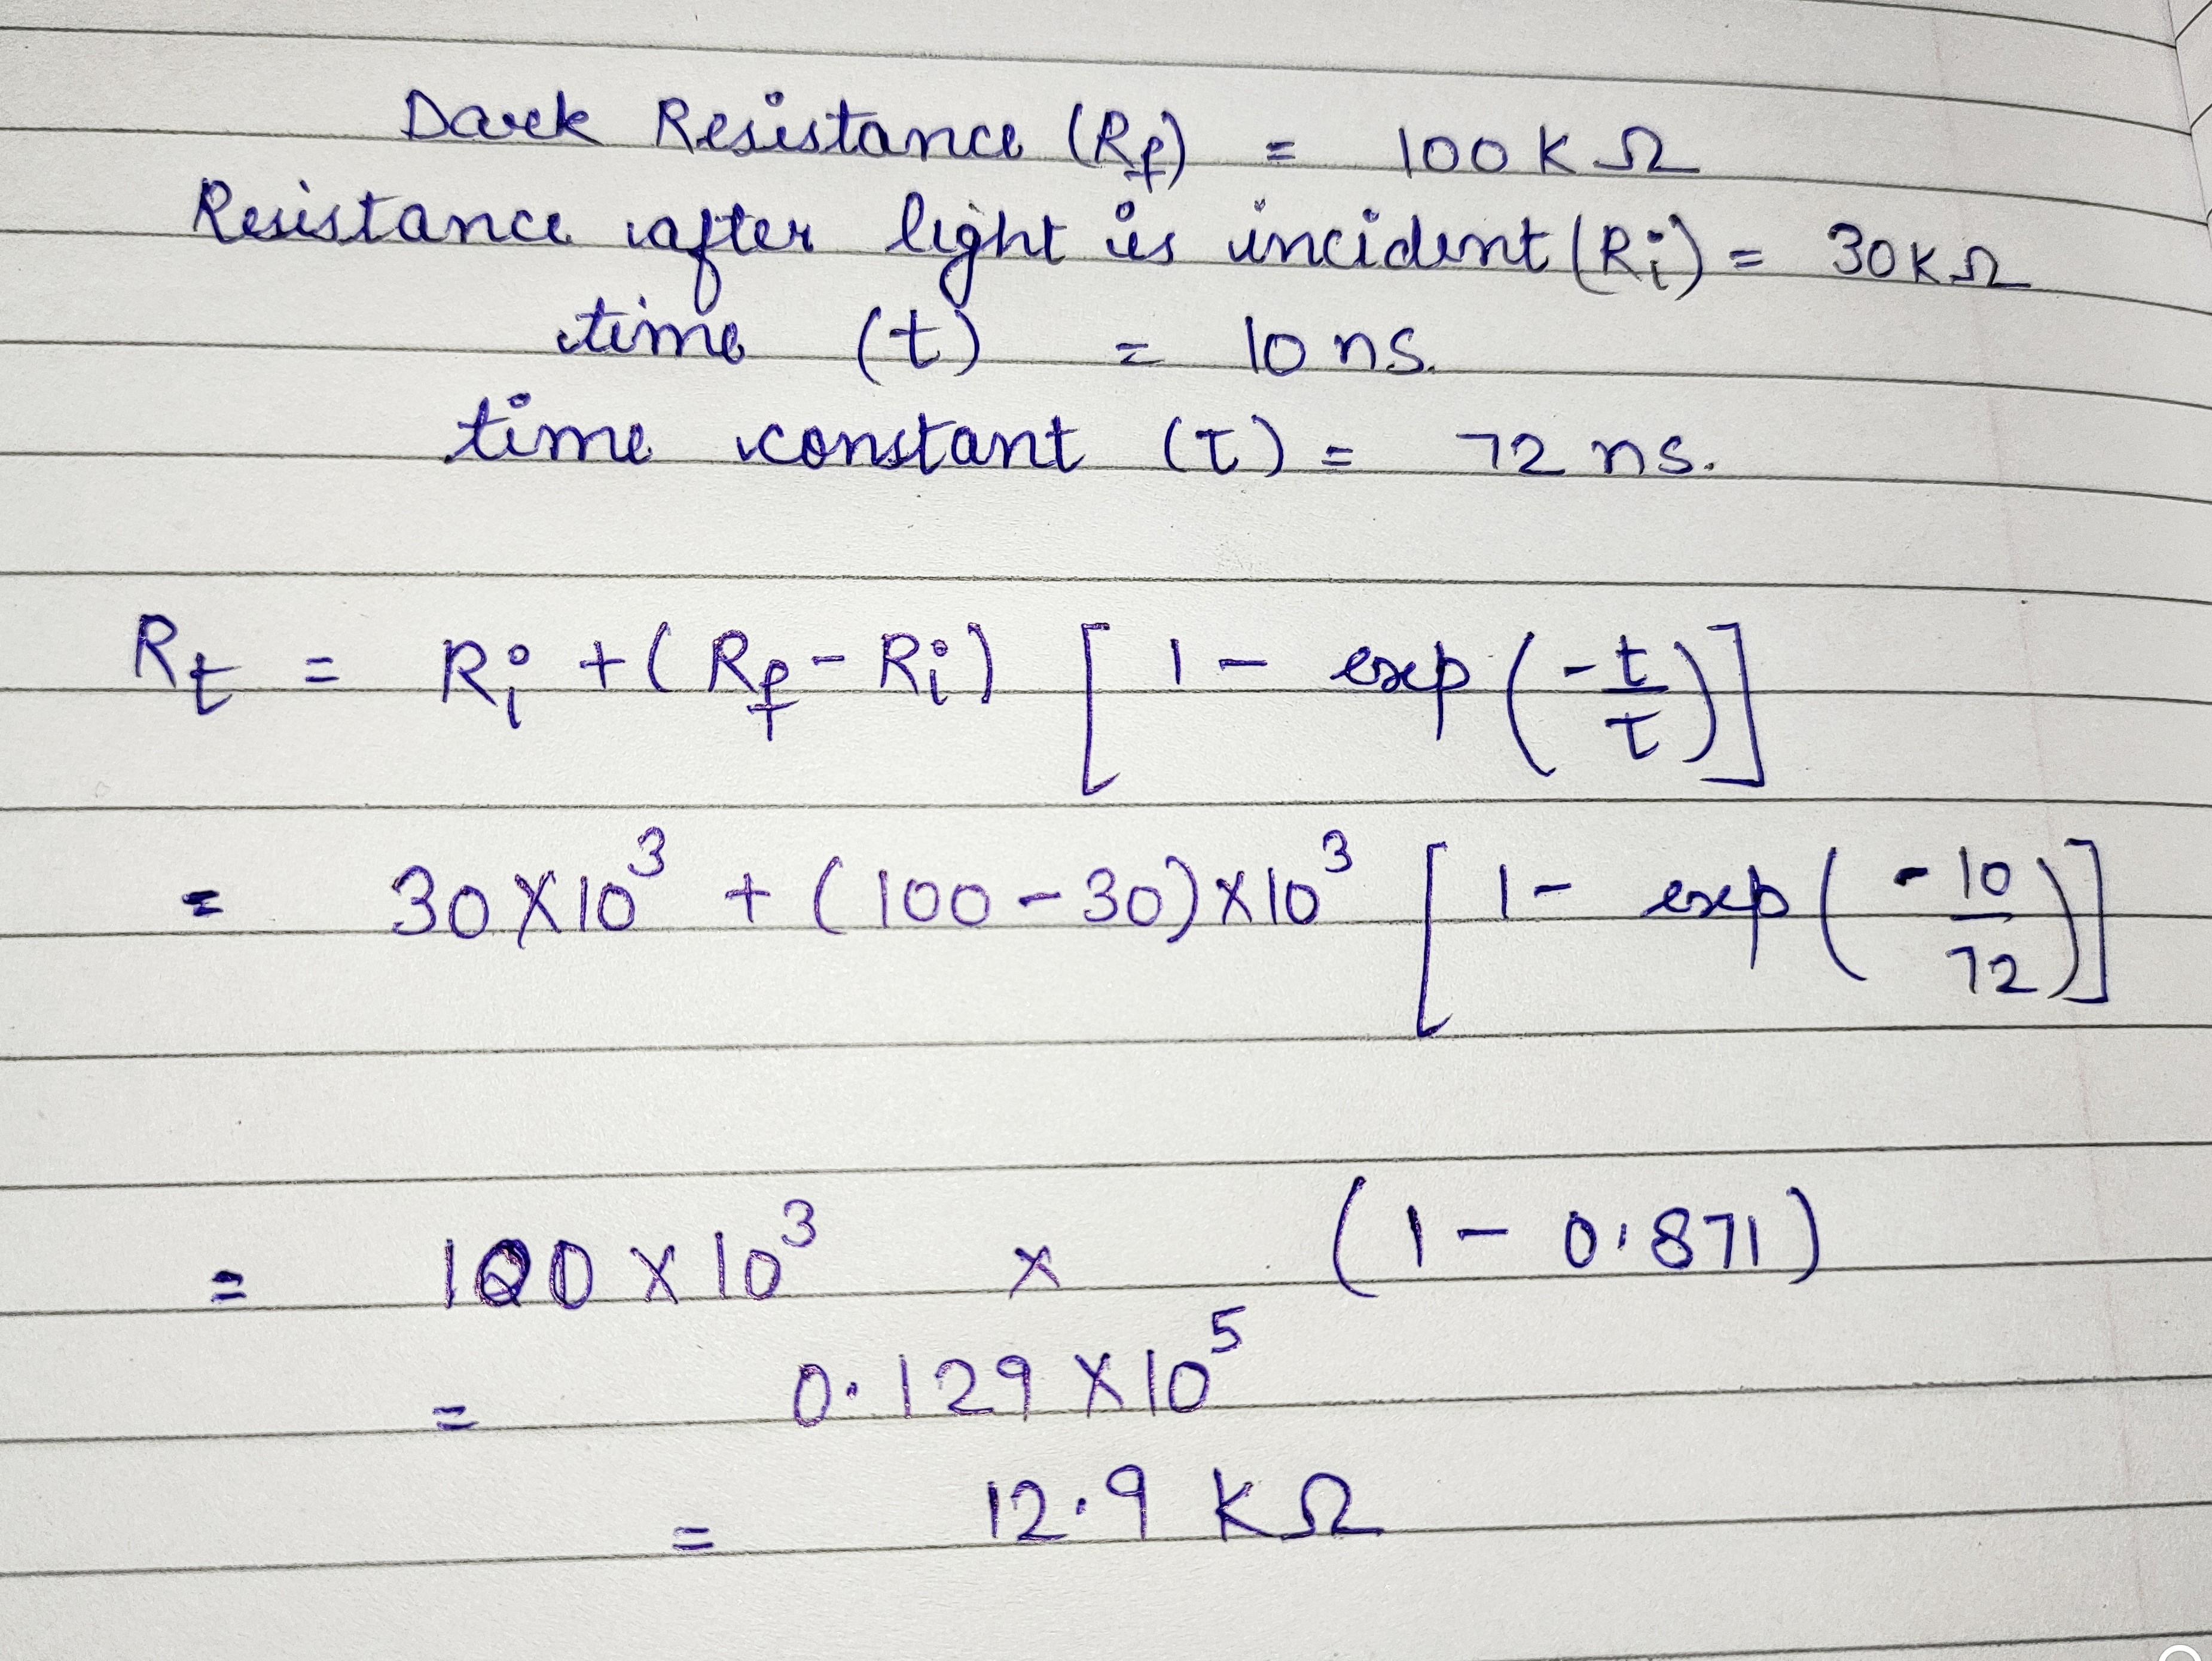 Dark Resistance (Rf) = 100 K Ω
Resistance after light is incident (Ri) = 30 K Ω
time (t) = 10 ns.
time constant (τ) = 72 ns.
Rt = Ri + (Rf - Ri) [1 - exp(-t/τ)]
= 30 X 10³ + (100 - 30) X 10³ [1 - exp(-10/72)]
= 100 X 10³ x (1 - 0.871)
= 0.129 X 10⁵
= 12.9 K Ω